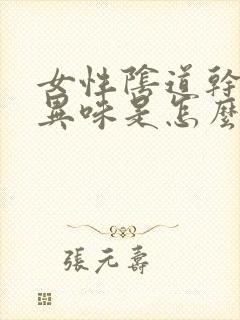 女性陰道幹
異味是怎麼
張元壽